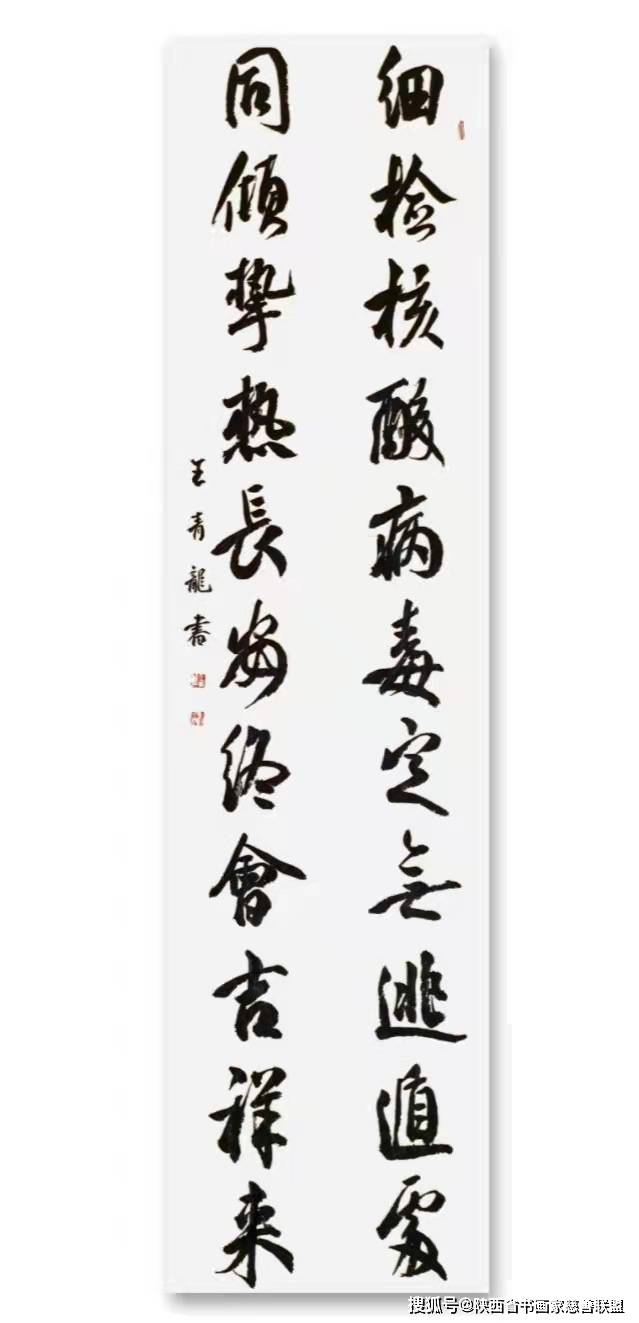 细检核酸病毒定无逃遁處
同倾挚热長安终會吉祥来
王青龍書
搜狐号@陕西省书画家慈善联盟